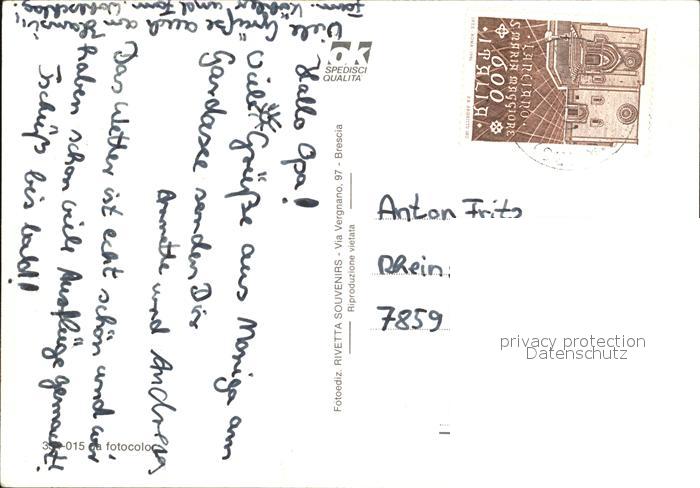 Hallo Opa!
Viele Grüße aus Moniga am
Gardasee senden Dir
Annette und Andreas
Das Wetter ist echt schön und wir
haben schon viele Ausflüge gemacht!
Tschüß bis bald!
Viele Grüße auch an
Fam. und Fam.
ok
SPEDISCI
QUALITÀ
Fotoediz. RIVETTA SOUVENIRS - Via Vergnano, 97 - Brescia
Riproduzione vietata
-015 da fotocolor
LANCIANO
S MARIA MAGGIORE
600
ITALIA
Anton Frits
Rhein
7859
privacy protection
Datenschutz